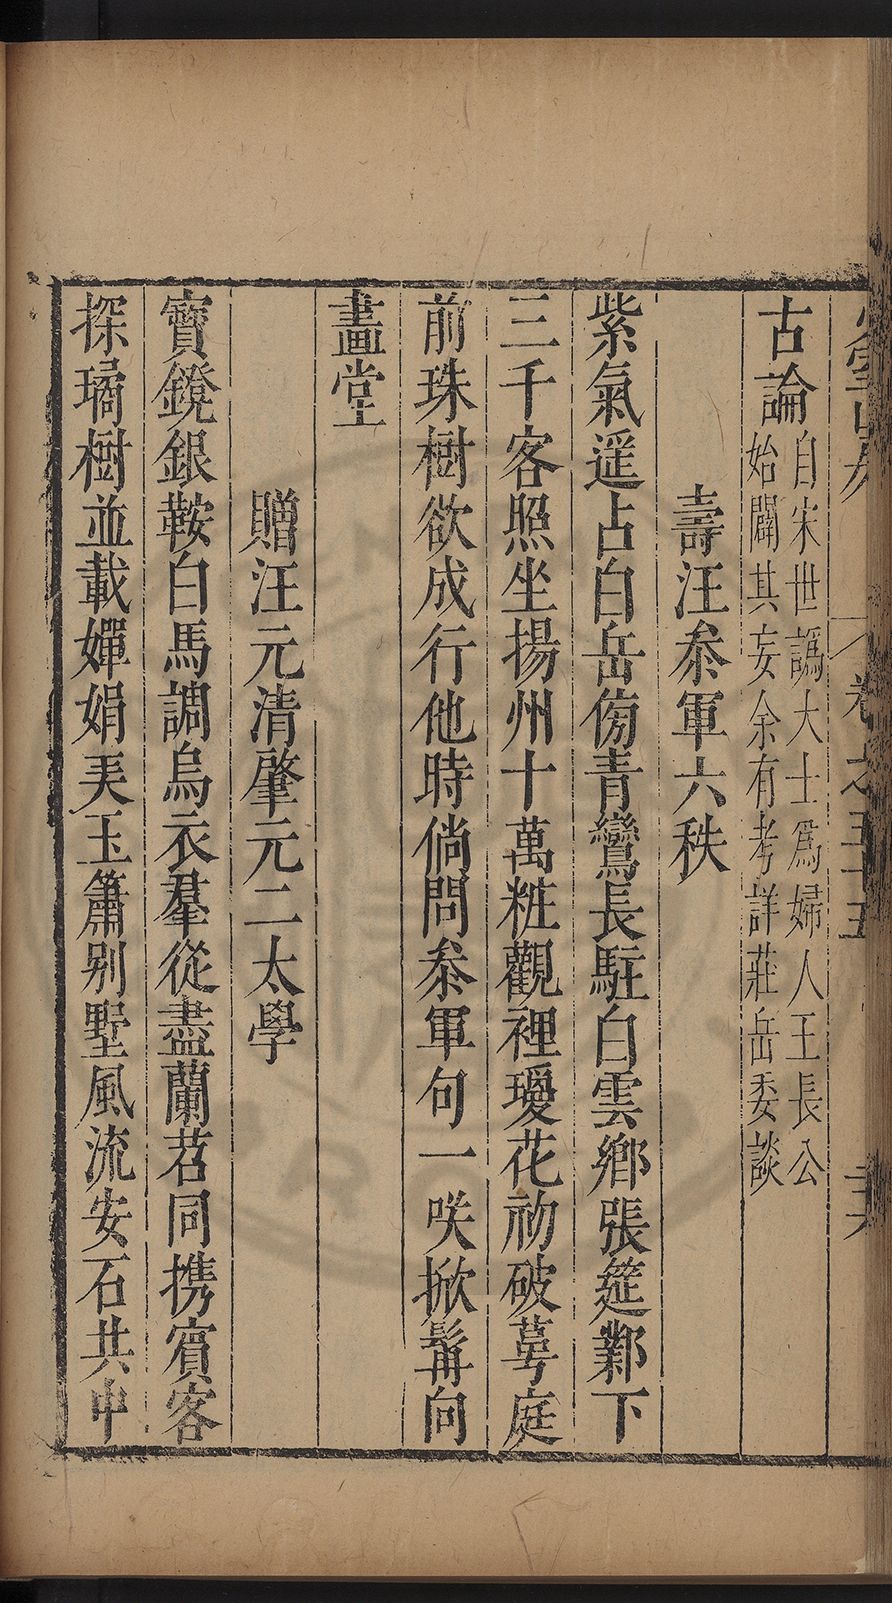 卷之五十五
古論自宋世譌大士爲婦人王長公
始闢其妄余有考詳莊岳委談
壽汪叅軍六秩
紫氣遥占白岳傍青鸞長駐白雲鄉張筵鄴下
三千客照坐揚州十萬粧觀裡璦花初破萼庭
前珠樹欲成行他時倘問叅軍句一咲掀髯向
畵堂
贈汪元清肇元二太學
寳鐙銀鞍白馬調烏衣羣從盡蘭苕同携賔客
探璚樹並載嬋娟美玉簫别墅風流安石共中